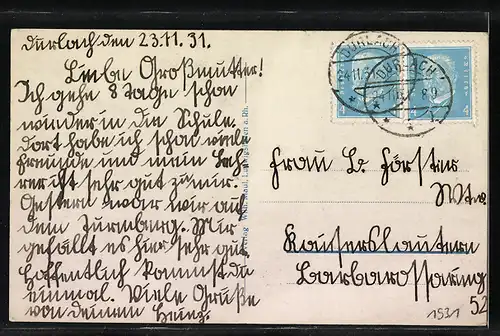 Durlach den 23.11.31.
Liebe Großmutter!
Ich gehe 8 Tage schon
wieder in die Schule.
Dort habe ich schon viele
Freunde und mein Leh
rer ist sehr gut zu mir.
Gestern war wir auf
dem Turmberg. Mir
gefällt es hier sehr gut
hoffentlich kommst du
einmal. Viele Grüße
von deinem Heinz.
DURLACH
DURLACH
Frau B. Förster
Wtw.
Kaiserslautern
Barbarossaring
52
1931